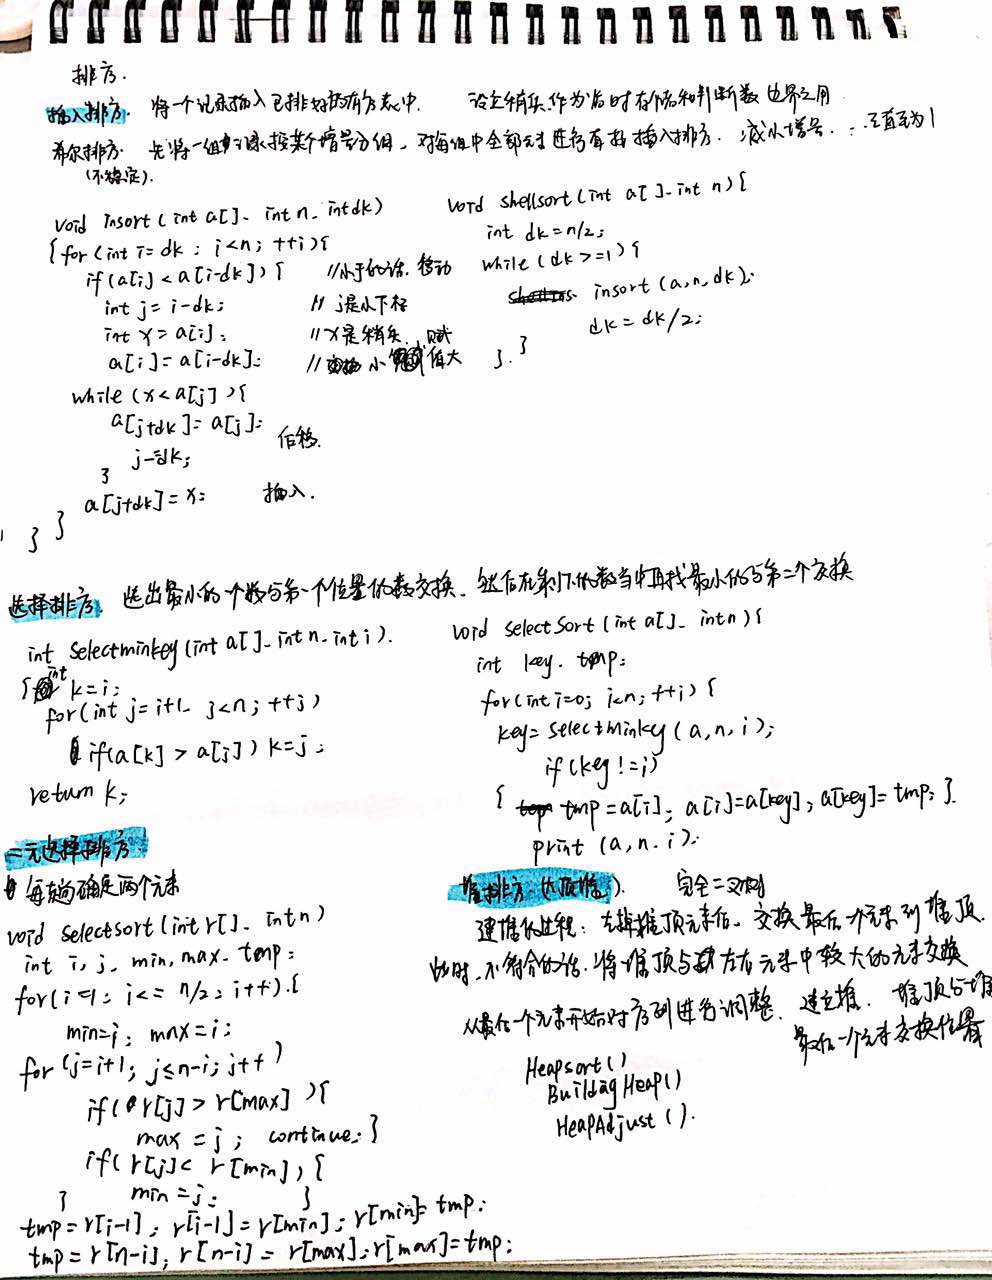 排序.
插入排序. 将一个记录插入已排好的有序表中. 设立稍兵作为临时存储和判断数边界之用
希尔排序. 先将一组记录按某个增量分组, 对每组中全部元素进行直接插入排序. 减小增量. … 直至为1
(不稳定).
void insort(int a[], int n, int dk)
{ for(int i=dk; i<n; ++i){
if(a[i]<a[i-dk]){ //小于的话, 移动
int j=i-dk; // j是小下标
int x=a[i]; //x是稍兵, 赋
a[i]=a[i-dk]; // 小 值大
while(x<a[j]){
a[j+dk]=a[j]; 后移.
j-=dk;
}
a[j+dk]=x; 插入.
} }
void shellsort(int a[], int n){
int dk=n/2;
while(dk>=1){
insort(a,n,dk);
dk=dk/2;
} }
选择排序. 选出最小的一个数与第一个位置的数交换. 然后在剩下的数当中再找最小的与第二个交换
int selectminkey(int a[], int n, int i).
{ int k=i;
for(int j=i+1, j<n; ++j)
if(a[k]>a[j]) k=j;
return k;
void selectSort(int a[], int n){
int key, tmp;
for(int i=0; i<n; ++i){
key=selectMinkey(a,n,i);
if(key!=i)
{ tmp=a[i]; a[i]=a[key]; a[key]=tmp; }
print(a,n,i);
二元选择排序
每趟确定两个元素
void selectsort(int r[], int n)
int i, j, min, max, tmp;
for(i=1; i<=n/2; i++){
min=i; max=i;
for(j=i+1; j≤n-i; j++)
if(r[j]>r[max]){
max=j; continue; }
if(r[j]<r[min]){
} min=j; }
tmp=r[i-1]; r[i-1]=r[min]; r[min]=tmp;
tmp=r[n-i]; r[n-i]=r[max]; r[max]=tmp;
堆排序(大顶堆). 完全二叉树
建堆的过程: 去掉堆顶元素后. 交换最后一个元素到堆顶.
此时, 不符合的话. 将堆顶与左右元素中较大的元素交换
从最后一个元素开始对序列进行调整. 建立堆. 堆顶与堆
最后一个元素交换位置
Heapsort()
BuildingHeap()
HeapAdjust().